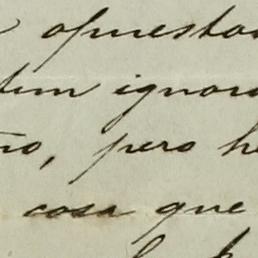 opuesta
tim ignora
no, pero h
cosa que